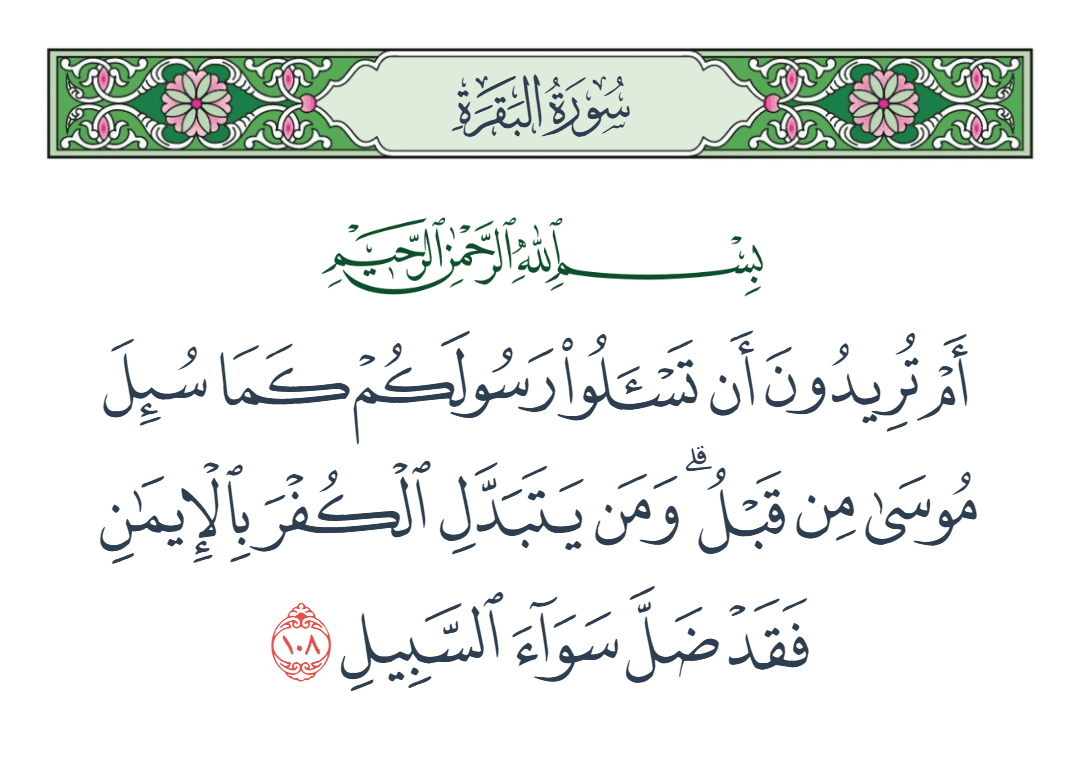 سُورَةُ البَقَرَةِ
بِسْمِ ٱللَّهِ ٱلرَّحْمَٰنِ ٱلرَّحِيمِ
أَمْ تُرِيدُونَ أَن تَسْـَٔلُوا۟ رَسُولَكُمْ كَمَا سُئِلَ
مُوسَىٰ مِن قَبْلُ ۗ وَمَن يَتَبَدَّلِ ٱلْكُفْرَ بِٱلْإِيمَٰنِ
فَقَدْ ضَلَّ سَوَآءَ ٱلسَّبِيلِ ١٠٨